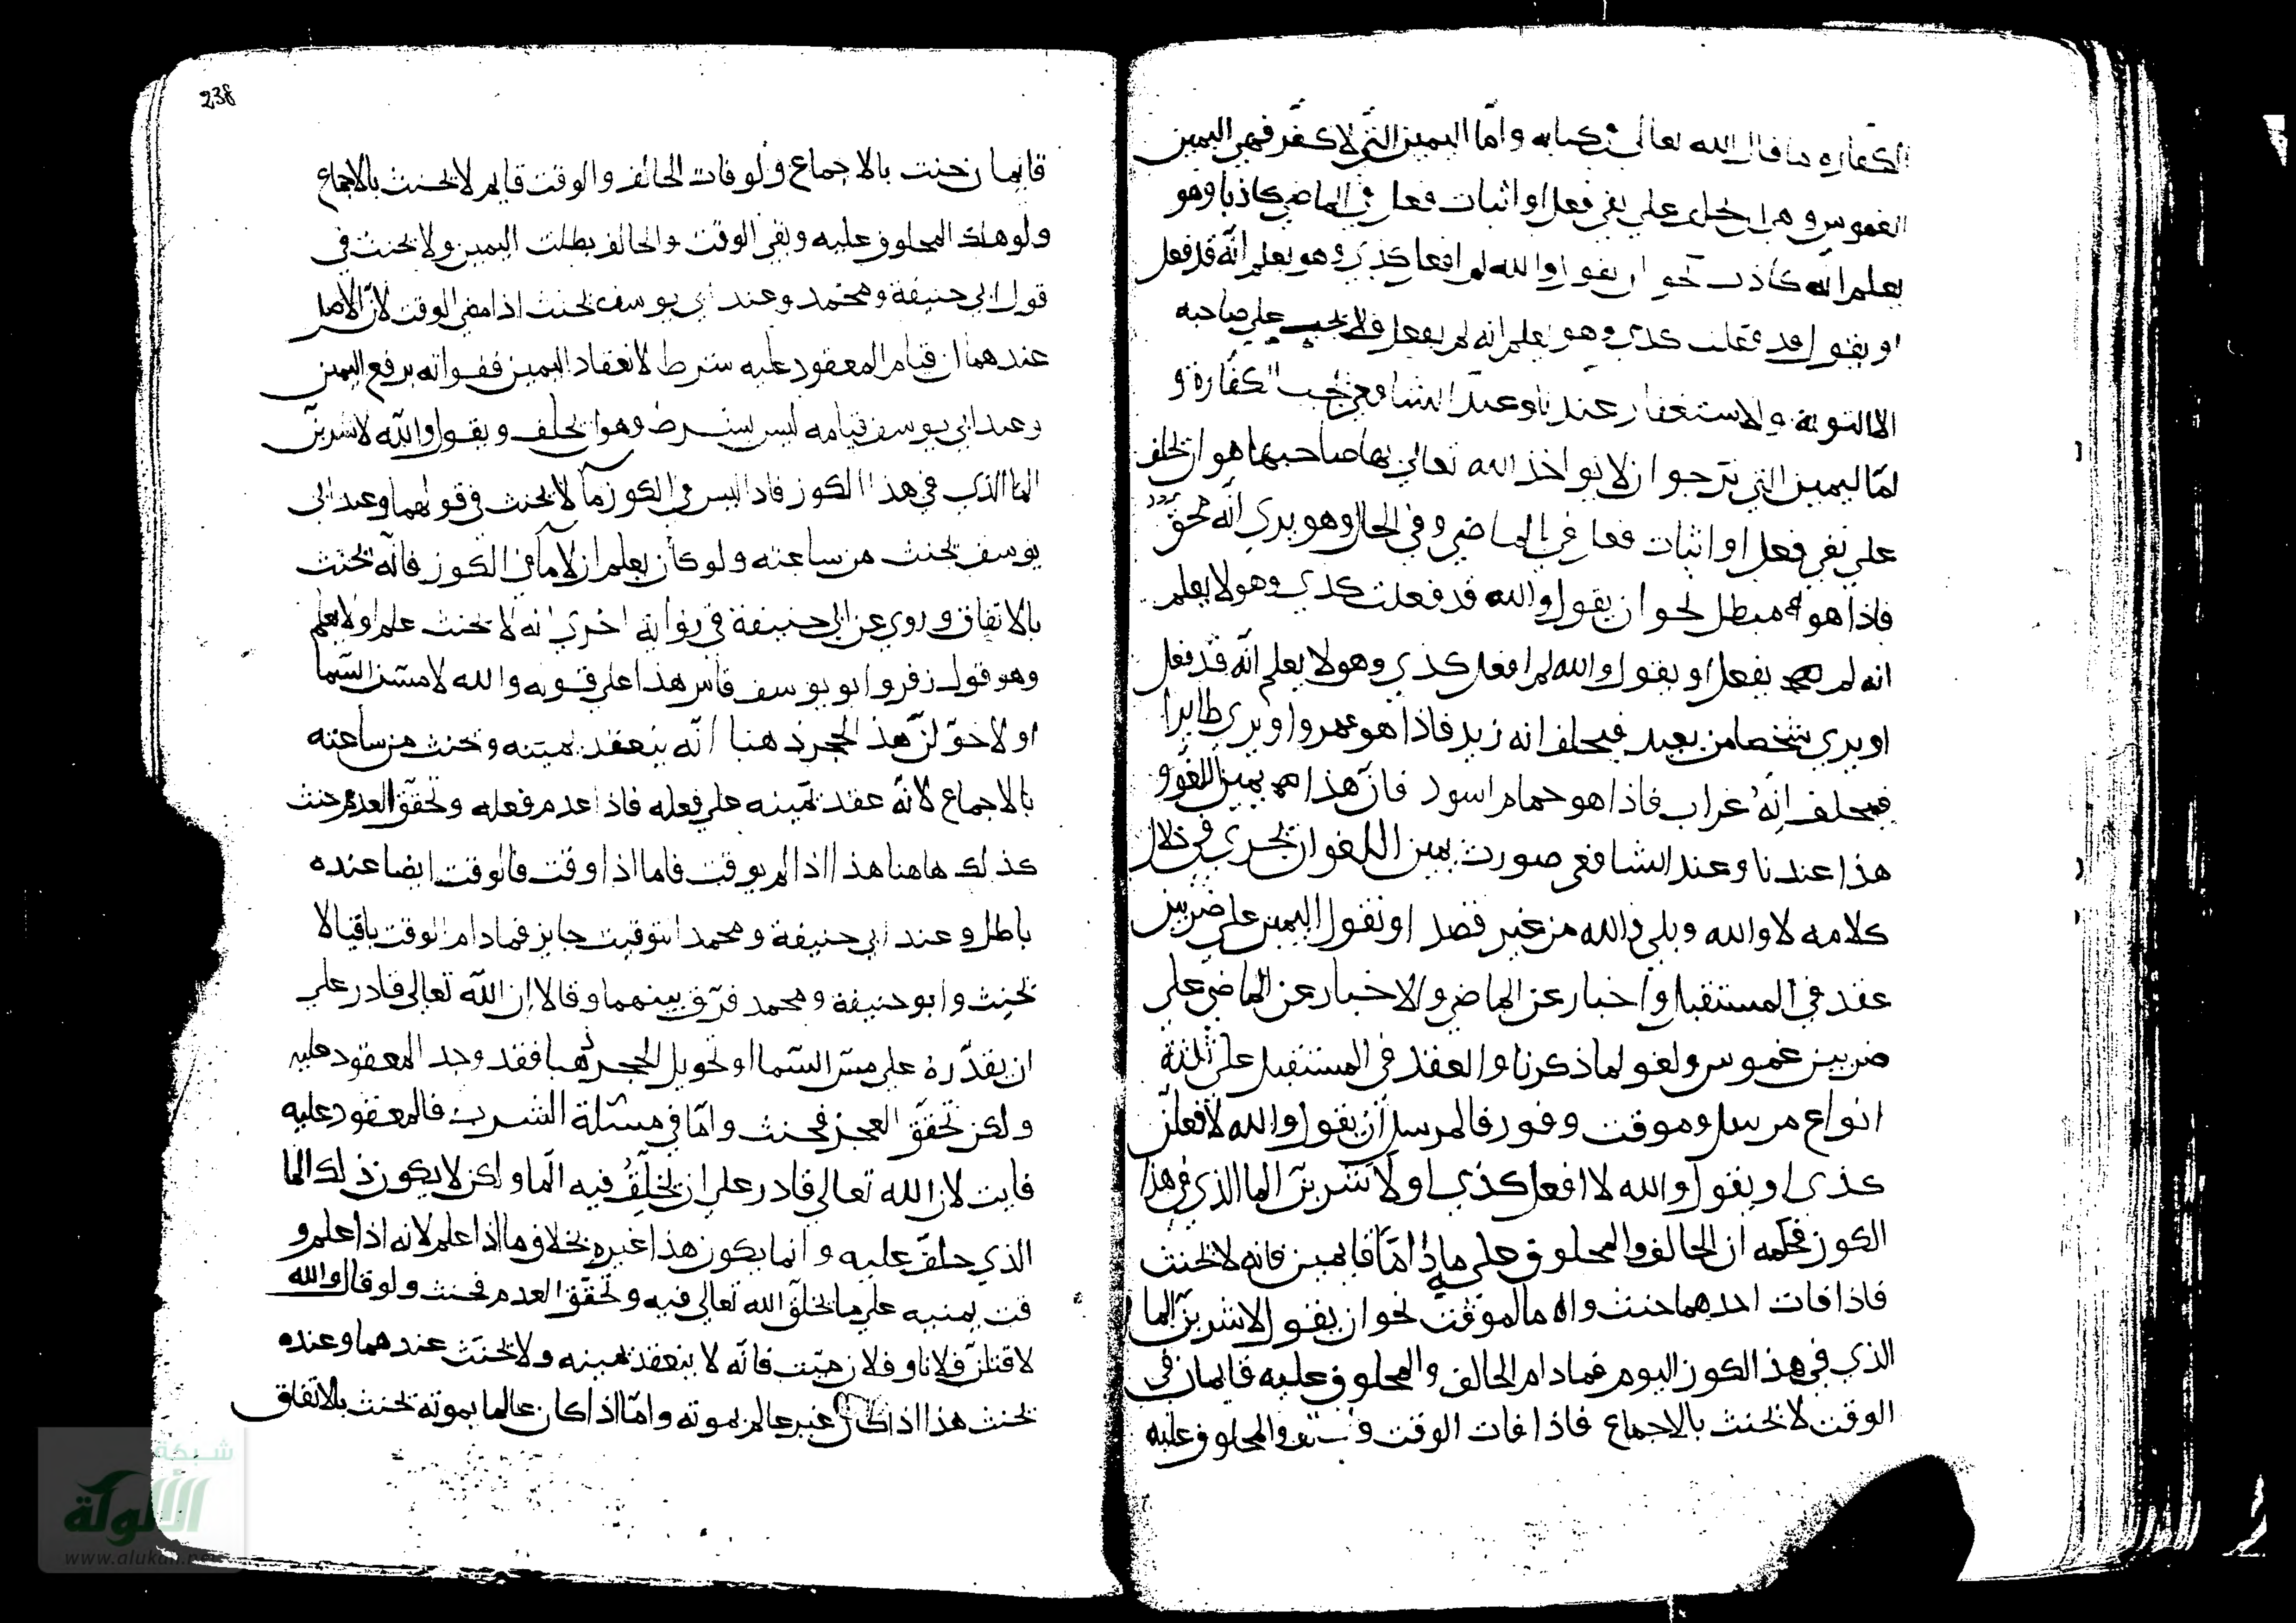 الكفارة ما قال الله تعالى في كتابه واما اليمين التي لا تكفر فهي اليمين
الغموس وهي الحلف على نفي فعل او اثبات فعل في الماضي كاذبا وهو
يعلم انه كاذب نحو ان يقول والله لم افعل كذى وهو يعلم انه قد فعل
او يقول قد فعلت كذى وهو يعلم انه لم يفعل فلا يجب على صاحبه
الا التوبة والاستغفار عندنا وعند الشافعي تجب الكفارة و
اما اليمين التي نرجوا ان لا يواخذ الله تعالى بها صاحبها هو ان يحلف
على نفي فعل او اثبات فعل في الماضي وفي الحال وهو يرى انه محق
فاذا هو مبطل نحو ان يقول والله قد فعلت كذى وهو لا يعلم
انه لم يفعل او يقول والله لم افعل كذى وهو لا يعلم انه قد فعل
او يرى شخصا من بعيد فيحلف انه زيد فاذا هو عمرو او يرى طايرا
فيحلف انه غراب فاذا هو حمام اسود فان هذا يمين اللغو و
هذا عندنا وعند الشافعي صورت يمين اللغو ان يجري في خلال
كلامه لا والله وبلى والله من غير قصد او نقول اليمين على ضربين
عقد في المستقبل واخبار عن الماضي والاخبار عن الماضي على
ضربين غموس ولغو لما ذكرنا والعقد في المستقبل على ثلثة
انواع مرسل وموقت وفور فالمرسل ان يقول والله لافعلن
كذى او يقول والله لا افعل كذى او لاشربن الما الذي في هذا
الكوز فحكمه ان الحالف والمحلوف عليه ما داما قايمين فانه لا يحنث
فاذا فات احدهما حنث واما الموقت نحو ان يقول لاشربن الما
الذي في هذ الكوز اليوم فمادام الحالف والمحلوف عليه قايمان في
الوقت لا يحنث بالاجماع فاذا فات الوقت والمحلوف عليه
238
قايمان حنث بالاجماع ولو فات الحالف والوقت قايم لا يحنث بالاجماع
ولو هلك المحلوف عليه وبقي الوقت والحالف بطلت اليمين ولا يحنث في
قول ابي حنيفة ومحمد وعند ابي يوسف يحنث اذا مضى الوقت لان الاصل
عندهما ان قيام المعقود عليه شرط لانعقاد اليمين ففواته يرفع اليمين
وعند ابي يوسف قيامه ليس بشرط وهو ان يحلف ويقول والله لاشربن
الما الذي في هذا الكوز فاذا ليس في الكوز مآ لا يحنث في قولهما وعند ابي
يوسف يحنث من ساعته ولو كان يعلم ان لا مآ في الكوز فانه يحنث
بالاتفاق وروي عن ابي حنيفة في رواية اخرى انه لا يحنث علم او لا يعلم
وهو قول زفر وابو يوسف قاس هذا على قوله والله لامسن السما
او لاحولن هذ الحجر ذهبا انه ينعقد يمينه وحنث من ساعته
بالاجماع لانه عقد يمينه على فعله فاذا عدم فعله وتحقق العدم حنث
كذلك هاهنا هذا اذا لم يوقت فاما اذا وقت فالوقت ايضا عنده
باطل وعند ابي حنيفة ومحمد التوقيت جايز فمادام الوقت باقيا لا
يحنث وابو حنيفة ومحمد فرق بينهما وقالا ان الله تعالى قادر على
ان يقدره على مس السما او تحويل الحجر ذهبا فقد وجد المعقود عليه
ولكن تحقق العجز فحنث واما في مسئلة الشرب فالمعقود عليه
فايت لان الله تعالى قادر على ان يخلق فيه الما ولكن لا يكون ذلك الما
الذي حلف عليه وانما يكون هذا غيره بخلاف ما اذا علم لانه اذا علم و
قت يمنيه على ما يخلق الله تعالى فيه وتحقق العدم فحنث ولو قال والله
لاقتلن فلانا وفلان ميت فانه لا ينعقد يمينه ولا يحنث عندهما وعنده
يحنث هذا اذا كان غير عالم بموته واما اذا كان عالما بموته يحنث بالاتفاق
شبكة
الألوكة